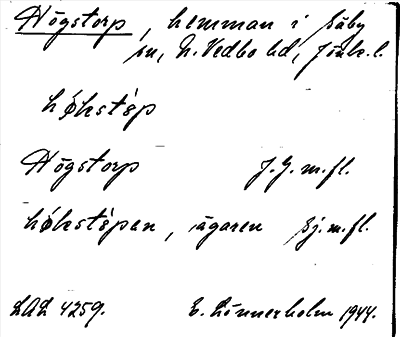 Högstorp, hemman i Säby
sn, N. Vedbo hd, Jönk. l.
hǿkstèp
Högstorp J. G. m. fl.
hǿkstèpan, ägaren Sj. m. fl.
LAL 4259. E. Lönnerholm 1944.